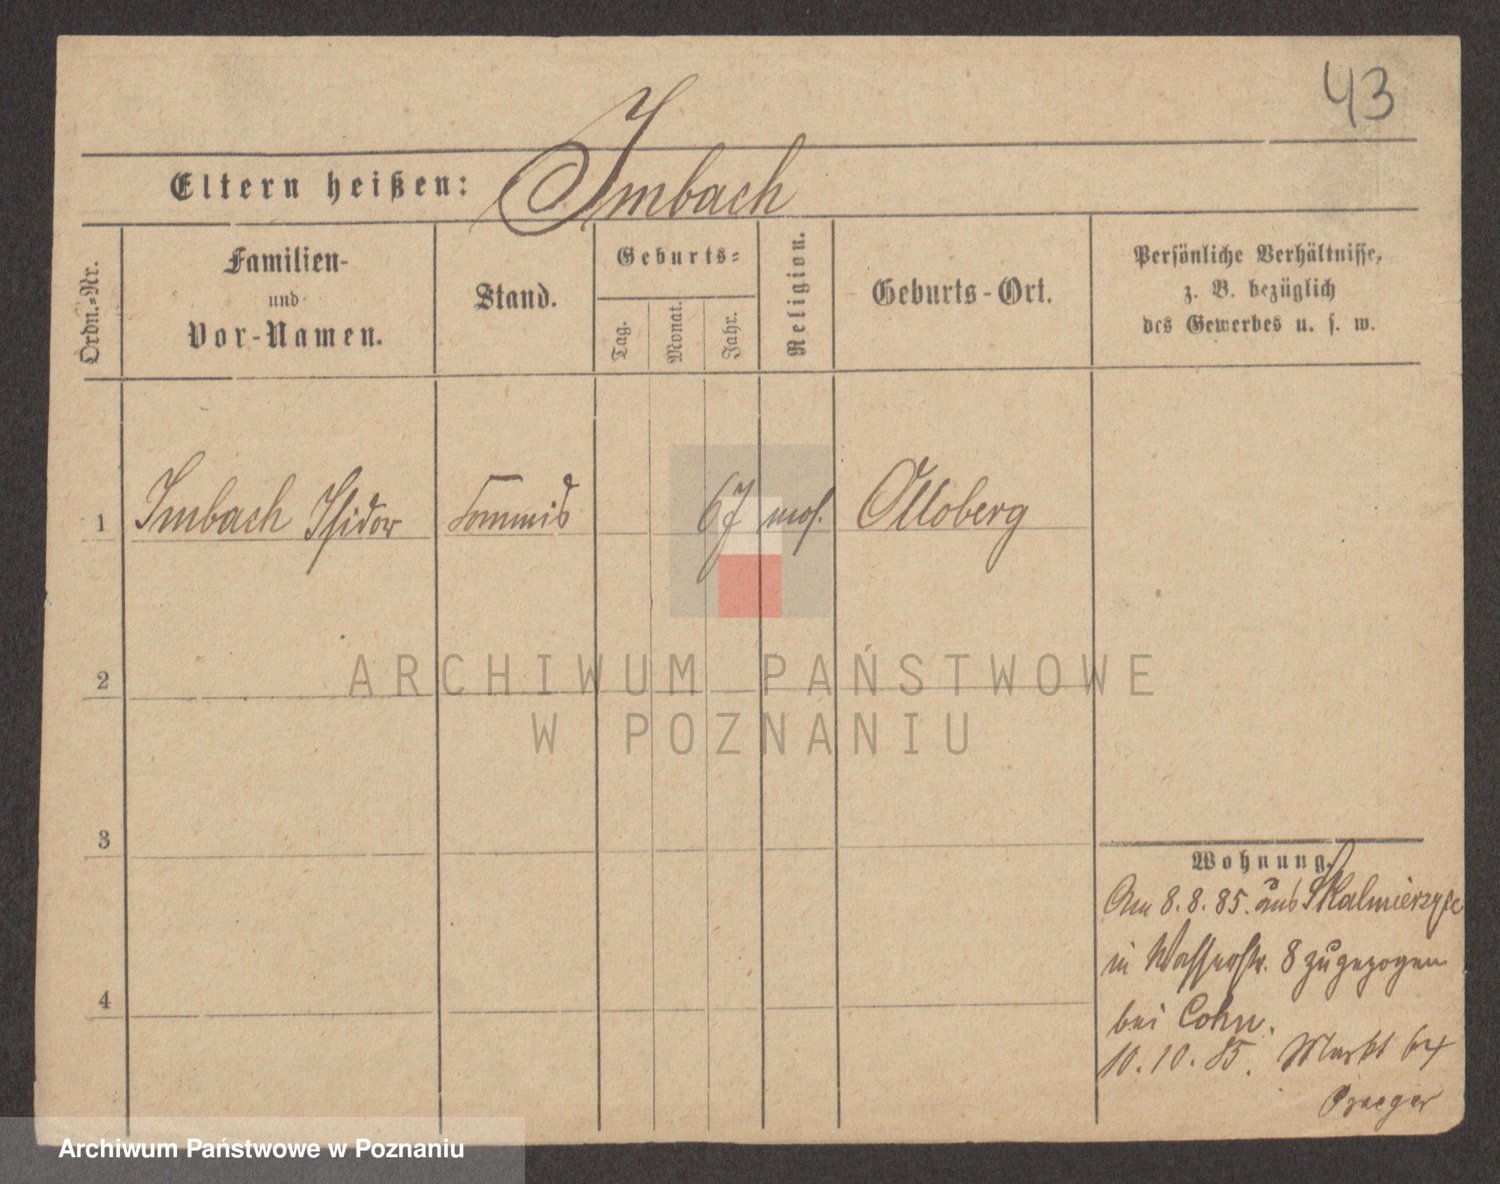 43
Eltern heißen: Imbach
Ordn.-Nr.
Familien-
und
Vor-Namen.
Stand.
Geburts-
Tag.
Monat.
Jahr.
Religion.
Geburts-Ort.
Persönliche Verhältnisse,
z. B. bezüglich
des Gewerbes u. s. w.
1 Imbach Isidor Commis 67 mos. Ottoberg
2
3
4
Wohnung.
Am 8. 8. 85. aus Skalmierzyce
in Wasserstr. 8 zugezogen
bei Cohn.
10. 10. 85. Markt
Praeger
ARCHIWUM PAŃSTWOWE
W POZNANIU
Archiwum Państwowe w Poznaniu